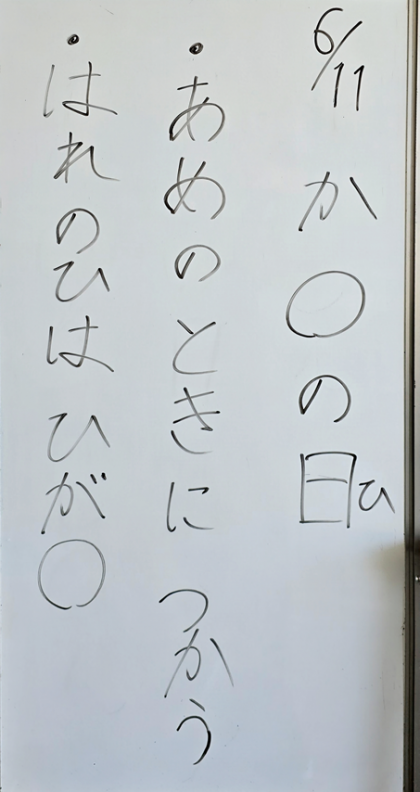 6/11 か〇の日ひ
・あめのときに つかう
・はれのひは ひが〇